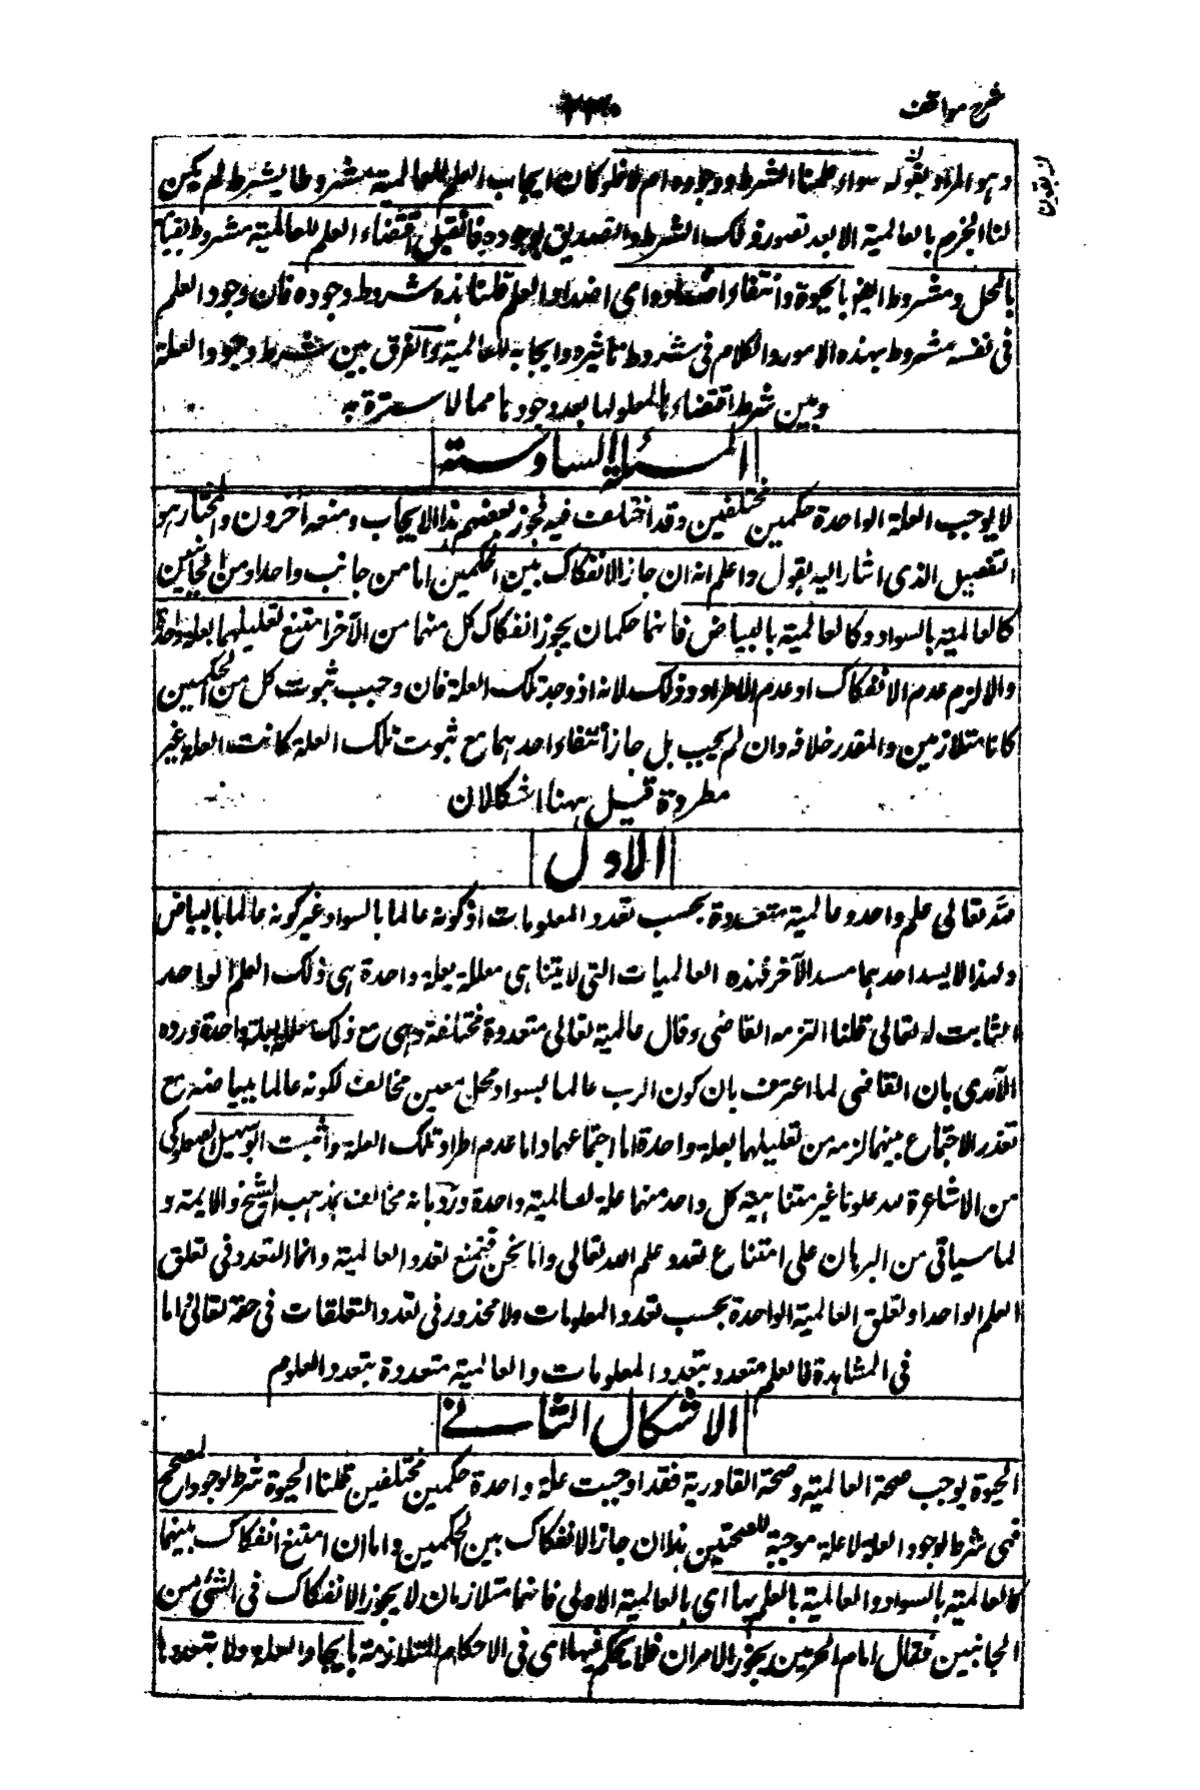 شرح مواقف
٢٢٠
وهو المراد بقوله سواء علمنا الشرط ووجوده ام لا فلو كان ايجاب العلم للعالمية مشروطا بشرط لم يكن
لنا الجزم بالعالمية الا بعد تصور ذلك الشرط والتصديق بوجوده فان قيل اقتضاء العلم للعالمية مشروط بقيامه
بالمحل ومشروط ايضا بالحيوة وانتفاء اضداده اى اضداد العلم قلنا هذه شروط وجوده فان وجود العلم
فى نفسه مشروط بهذه الامور والكلام فى شروط تاثيره وايجابه للعالمية والفرق بين شرط وجود العلة
وبين شرط اقتضائها لمعلولها بعد وجودها مما لا سترة به
المسئلة السادسة
لا يوجب العلة الواحدة حكمين مختلفين وقد اختلف فيه فجوز بعضهم هذا الايجاب ومنعه آخرون والمختار هو
التفصيل الذى اشار اليه بقوله واعلم انه ان جاز الانفكاك بين الحكمين اما من جانب واحد او من الجانبين
كالعالمية بالسواد وكالعالمية بالبياض فانهما حكمان يجوز انفكاك كل منهما من الآخر امتنع تعليلهما بعلة واحدة
والا لزم عدم الانفكاك او عدم الاطراد وذلك لانه اذ وجد تلك العلة فان وجب ثبوت كل من الحكمين
كانا متلازمين والمقدر خلافه وان لم يجب بل جاز انتفاء احدهما مع ثبوت تلك العلة كانت العلة غير
مطردة قيل ههنا اشكالان
الاول
لله تعالى علم واحد وعالمية متعددة بحسب تعدد المعلومات اذ كونه عالما بالسواد غير كونه عالما بالبياض
ولهذا لا يسد احدهما مسد الآخر فهذه العالميات التى لا يتناهى معللة بعلة واحدة هى ذلك العلم الواحد
الثابت له تعالى قلنا التزمه القاضى وقال عالمية تعالى متعددة مختلفة وهى مع ذلك معللة بعلة واحدة ورده
الآمدى بان القاضى لما اعترف بان كون الرب عالما بسواد محل معين مخالف لكونه عالما ببياضه مع
تعذر الاجتماع بينهما لزمه من تعليلهما بعلة واحدة اما اجتماعهما واما عدم اطراد تلك العلة واثبت ابو سهيل الصعلوكى
من الاشاعرة لله علوما غير متناهية كل واحد منهما علة لعالمية واحدة ورد بانه مخالف لمذهب الشيخ والايمة و
لما سياتى من البرهان على امتناع تعدد علم الله تعالى واما نحن فنمنع تعدد العالمية وانما التعدد فى تعلق
العلم الواحد او تعلق العالمية الواحدة بحسب تعدد المعلومات ولا محذور فى تعدد التعلقات فى حقه تعالى اما
فى المشاهدة فالعلم متعدد بتعدد المعلومات والعالمية متعددة بتعدد العلوم
الاشكال الثانى
الحيوة يوجب صحة العالمية وصحة القادرية فقد اوجبت علة واحدة حكمين مختلفين قلنا الحيوة شرط لوجود المصحح
فهى شرط لوجود العلة لا علة موجبة للصحتين هذا ان جاز الانفكاك بين الحكمين واما ان امتنع انفكاك بينهما
كالعالمية بالسواد والعالمية بالعلم بها اى بالعالمية الاولى فانهما متلازمان لا يجوز الانفكاك فى الشئ من
الجانبين فقال امام الحرمين يجوز الامران فلا يحكم فيها اى فى الاحكام المتلازمة بايجاد العلة ولا بتعددها